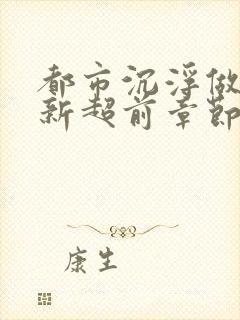 都市沉浮做
新超前章節
康生